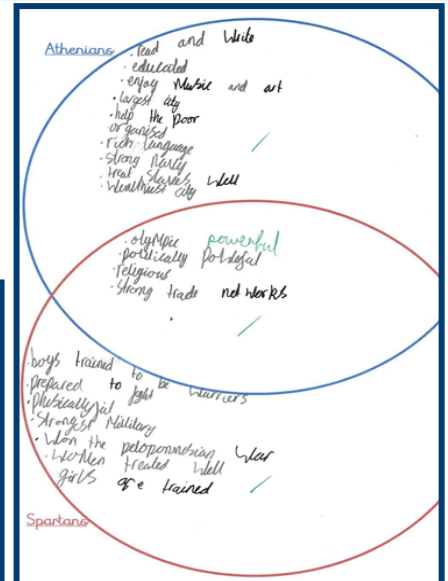 Athenians
• read and write
• educated
• enjoy Music and art
• largest city
• help the poor
organised
• rich language
• strong Navy
• treat slaves well
• wealthiest city
• olympic powerful
• politically
• religious
• strong trade networks
•
• boys trained to be warriors
• prepared to fight
• physically fit
• strongest Military
• Won the peloponnesian war
• women treated well
girls are trained
Spartans